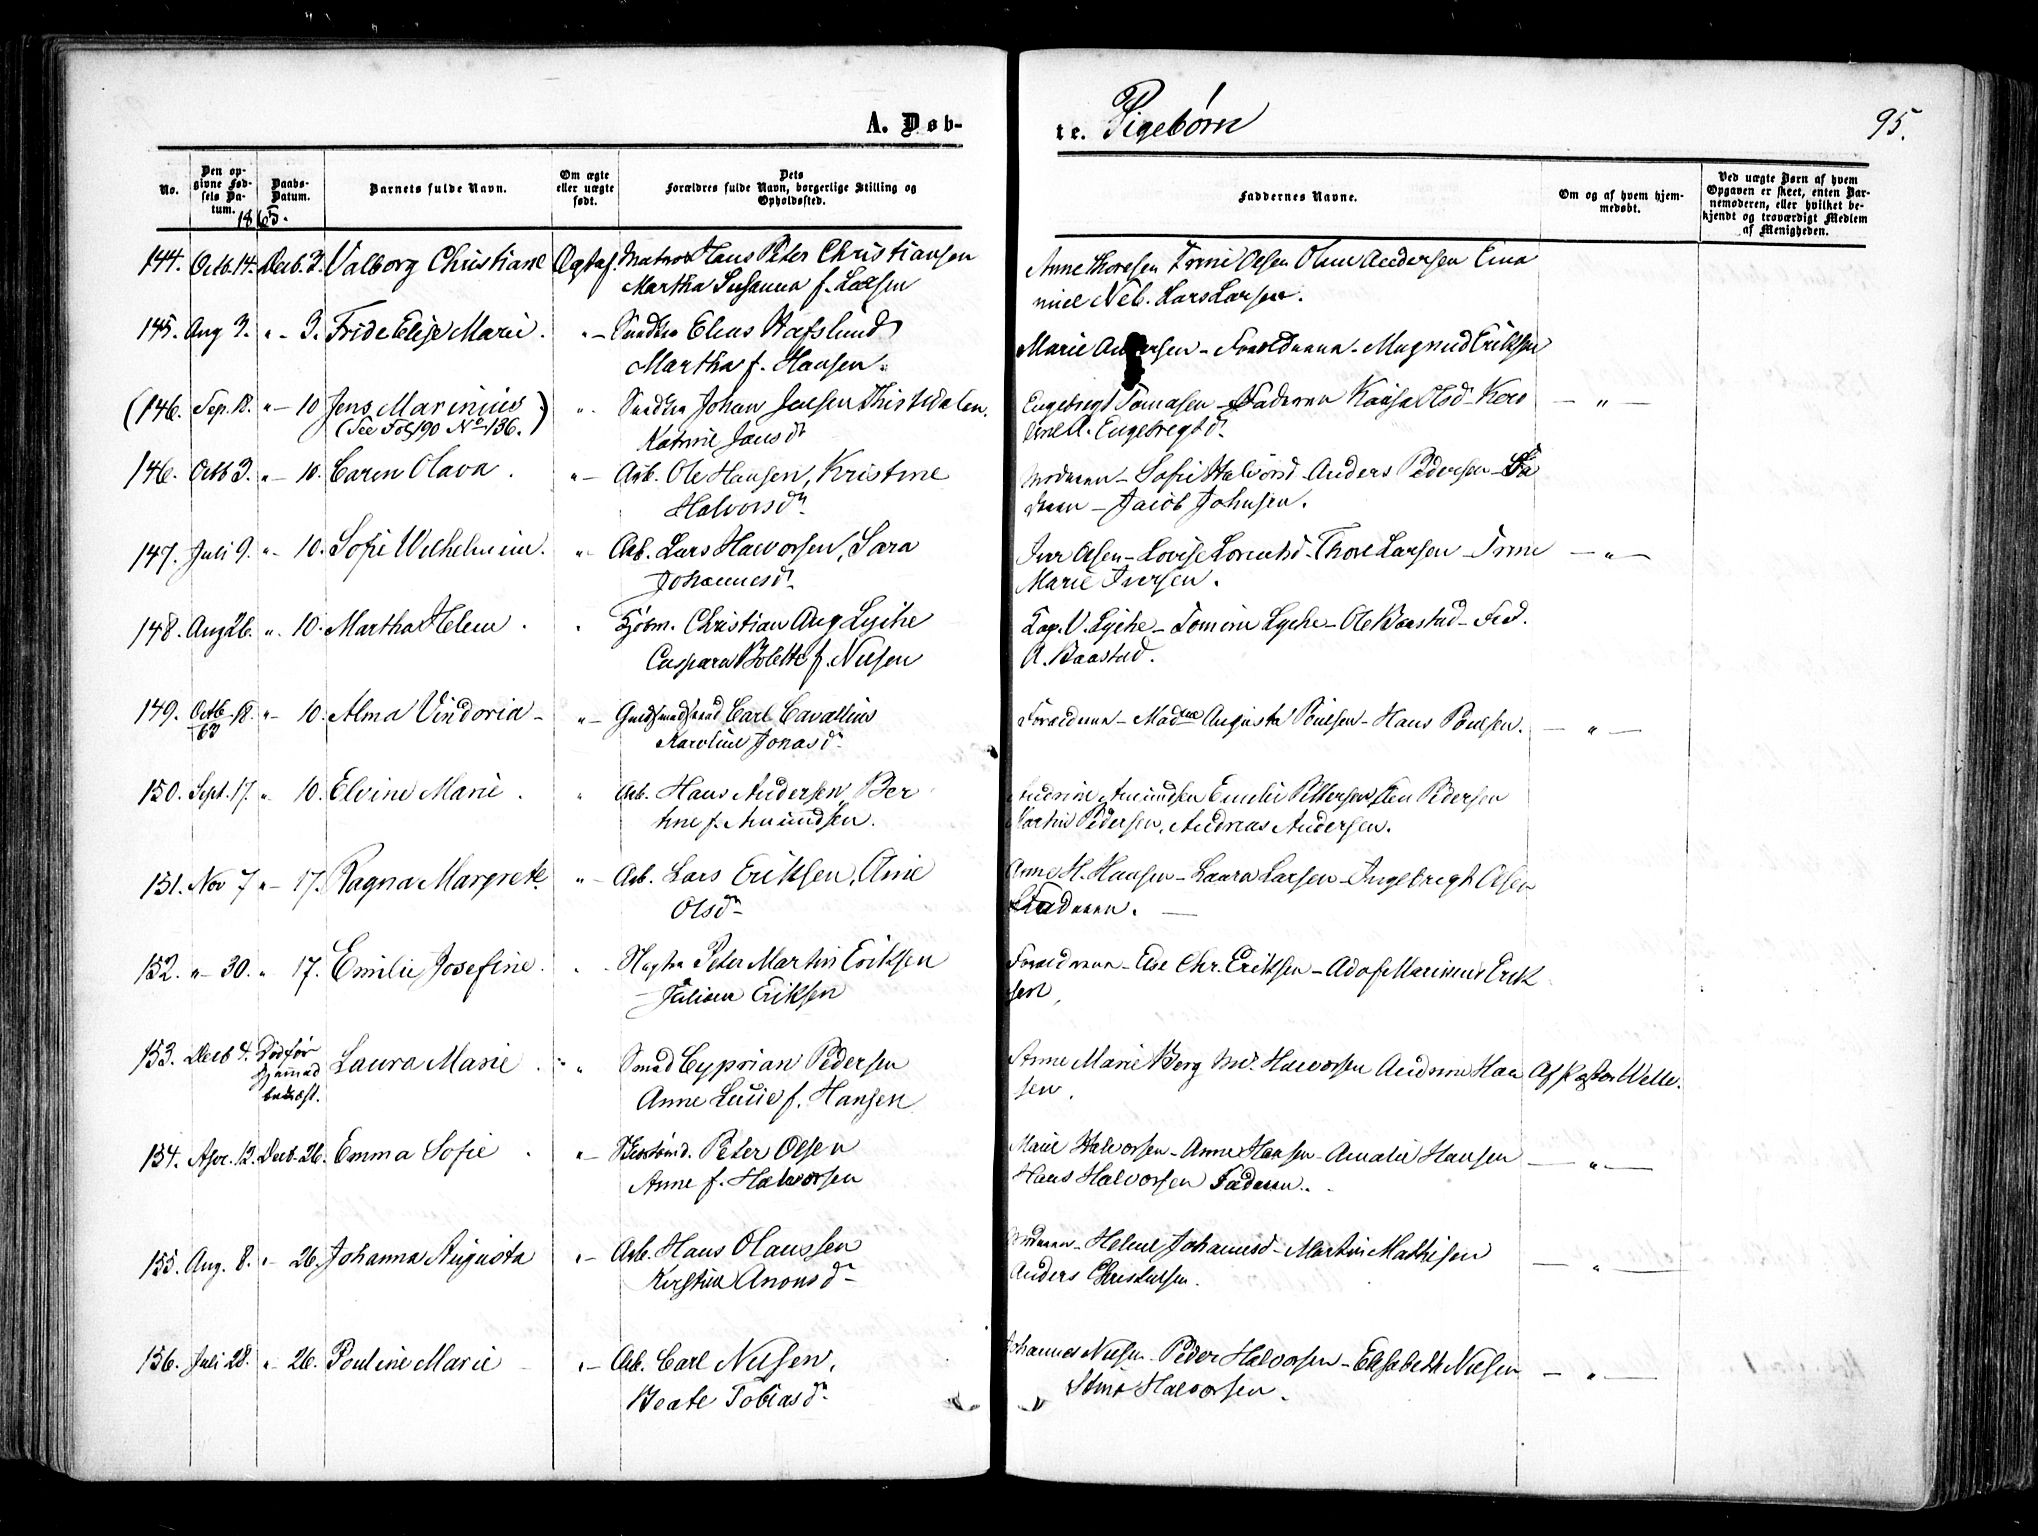 A. Døb-
te. Pigebørn
95.
No.
Den op-
givne Fød-
sels Da-
tum.
Daabs-
Datum.
Barnets fulde Navn.
Om ægte
eller uægte
født.
Dets
Forældres fulde Navn, borgerlige Stilling og
Opholdssted.
Faddernes Navne.
Om og af hvem hjem-
medøbt.
Ved uægte Børn af hvem
Opgaven er skeet, enten Bar-
nemoderen, eller hvilket be-
kjendt og troværdigt Medlem
af Menigheden.
1865.
144. Octb. 14. Decb. 3. Valborg Christiane Ægtef. Matros Hans Peter Christiansen
Martha Susanna f. Larsen
Anne Thoresen Trine Olsen Andersen
Lars Larsen.
145. Aug 3. " - 3. Fride Elise Marie. " - Elias Hafslund
Martha f. Hansen.
Marie Andersen - Forældrene - Magnus Eriksen
(146. Sep. 18. " - 10 Jens Marinius ) " Johan Jensen Thistedalen.
(See Fol. 90 No 136.)
Katrine Jansd.
Engebregt Tomasen - Faderen Kaisa Olsd - Karo
line A. Engebregtsd. - " -
146. Octb 3. " - 10. Caren Olava. " - Arb. Ole Hansen, Kristine
Halvorsd.
Moderen - Sofie Halvorsd - Anders Pedersen - Fa
deren - Jacob Johnsen.
147. Juli 9. " - 10. Sofie Wilhelmine. " - Arb. Lars Halvorsen, Sara
Johannesd.
Iver Olsen - Lovise Lorentsd - Thore Larsen - Trine
Marie Iversen. - " -
148. Aug 26. " 10. Martha Helene. " Kjøbm. Christian Aug Lyche
Caspara Bolette f. Nilsen
Kap. V. Lyche - Tomine Lyche - Ole Baastad - Fred.
A. Baastad.
149. Octb 18. " - 10. Alma Vindoria - " - Carl Cavallius
63
Karoline Jonasd.
Forældrene - Madme Augusta Poulsen - Hans Poulsen. - " -
150. Sept. 17. " 10. Elvine Marie. " Arb. Hans Andersen, Ber
tine f. Amundsen.
Andrine Amundsen Emilie Pettersen Pedersen
Martin Pedersen, Andreas Andersen.
151. Nov 7 " - 17. Ragna Margrete. " - Arb. Lars Eriksen, Anne
Olsd.
Anne M. Hansen - Laura Larsen - Ingebregt Olsen
Faderen. -
152. " - 30. " 17. Emilie Josefine. " - Peter Martin Eriksen
Juliane Eriksen
Forældrene - Else Chr. Eriksen - Adof Marinius Erik
sen.
153. Decb 4. Død før Laura Marie. " Smed Cyprian Pedersen
Hjemmed
bekræft.
Anne Lucie f. Hansen
Anne Marie Berg Md. Halvorsen Andrine Han
sen. Af Pastor Welle.
154. Apr. 12. Decb. 26. Emma Sofie. " - Peter Olsen
Anne f. Halvorsen
Marie Halvorsen - Anne Hansen - Amalie Hansen
Hans Halvorsen Faderen. - " -
155. Aug. 8. " - 26. Johanna Augusta " - Arb. Hans Olaussen
Kirstine Aronsd.
Moderen - Helene Johannesd - Martin Mathisen
Anders Christensen. - " -
156. Juli 28. " - 26. Pouline Marie - " - Arb. Carl Nilsen,
Beate Tobiasd.
Johannes Nilsen Peder Halvorsen - Elisabeth Nilsen
Stina Halvorsen. - " -